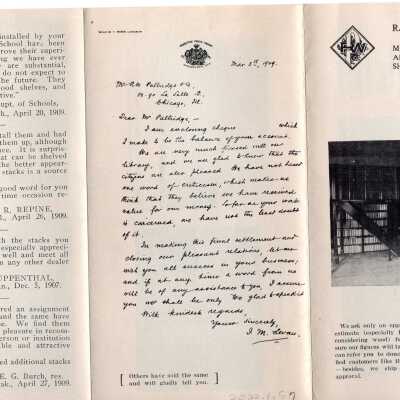 installed by your
School have been
prove their superi-
ng we have ever
are substantial,
do not expect to
the future. They
ood shelves, and
ctive."
upt. of Schools,
ak., April 20, 1909.
tall them and had
them up, although
ce. It is surpris-
at can be shelved
the better appear-
stacks is a source
good word for you
time occasion re-
R. REPINE,
., April 26, 1909.
th the stacks you
especially appreci-
well and meet all
n any other dealer
UPPENTHAL,
n., Dec. 5, 1907.
ered an assignment
and the same have
ce. We find them
pleasure in recom-
erson or institution
ble and attractive
d additional stacks
E. G. Burch, res.
ak., April 27, 1909.
Mar 2nd, 1909.
Chicago, Ill.
Dear Mr Pallridge,—
I am enclosing cheque which
I make to be the balance of your account.
We are very much pleased with our
library, and we are glad to know that the
citizens are also pleased. We have not heard
one word of criticism, which makes us
think that they believe we have received
value for our money. So far as your work
is concerned, we have not the least doubt
of it.
In making this final settlement and
closing our pleasant relations, let me
wish you all success in your business;
and if at any time a word from us
will be of any assistance to you, I assure
you we shall be only too glad to speak it
With kindest regards,
Yours sincerely,
Others have said the same
and will gladly tell you.
R.
M
A
SH
We ask only an opp
estimate (especially i
considering wood) fo
sure our figures will in
can refer you to done
fied customers like th
—besides, we ship
appraval.